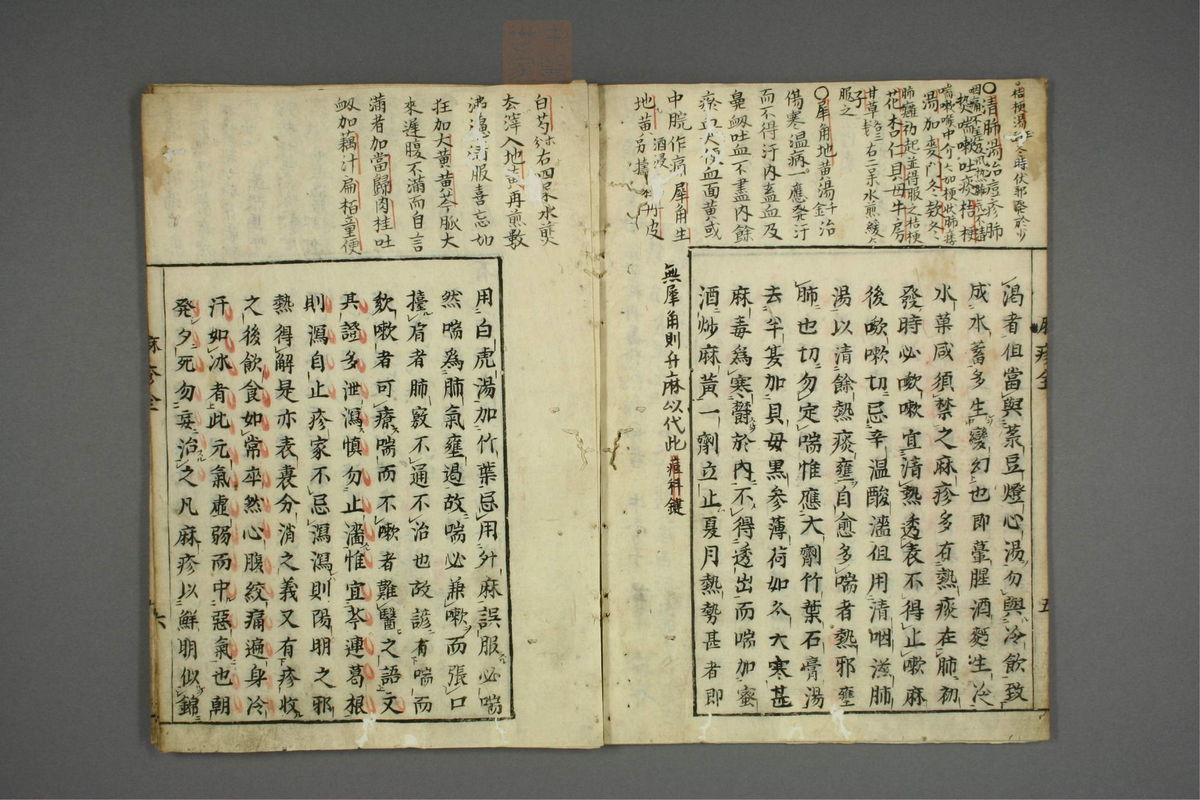 桔梗湯
○清肺湯治痘疹肺
熱喘嗽吐痰桔梗
湯加麥門冬款冬
肺癰初起並得服之桔梗
花杏仁貝母牛房
甘草 右二 水煎緩
服之
○犀角地黃湯 治
傷寒温病一應發汗
而不得汗内蓄血及
鼻衂吐血不盡内餘
瘀血大便血面黄或
中脘作痛犀角生
地黄酒浸 丹皮
渴者但當與菉豆燈心湯勿與冷飲致
成水蓄多生變幻也即葷腥酒麪生冷
水菓咸須禁之麻疹多有熱痰在肺初
發時必欬嗽宜清熱透表不得止嗽麻
後欬嗽切忌辛温酸濇但用清咽滋肺
湯以清餘熱痰壅自愈多喘者熱邪壅
肺也切勿定喘惟應大劑竹葉石膏湯
去半夏加貝母黒參薄荷如冬大寒甚
麻毒為寒欝於内不得透出而喘加蜜
酒炒麻黄一劑立止夏月熱勢甚者即
無犀角則升麻以代此 痘科鍵
麻疹全
五
白芍 右四 水煎
去滓入地黄再煎數
沸 清服喜忘如
狂加大黄黄芩脈大
來遲腹不滿而自言
滿者加當歸肉桂吐
衂加藕汁扁栢童便
用白虎湯加竹葉忌用升麻誤服必喘
然喘為肺氣壅遏故喘必兼嗽而張口
擡肩者肺竅不通不治也故諺有喘而
欬嗽者可療喘而不嗽者難醫之語又
其證多泄瀉慎勿止濇惟宜芩連葛根
則瀉自止疹家不忌瀉瀉則陽明之邪
熱得解是亦表裏分消之義又有疹收
之後飲食如常卒然心腹絞痛遍身冷
汗如冰者此元氣虛弱而中惡氣也朝
發夕死勿妄治之凡麻疹以鮮明似錦
麻疹全
六